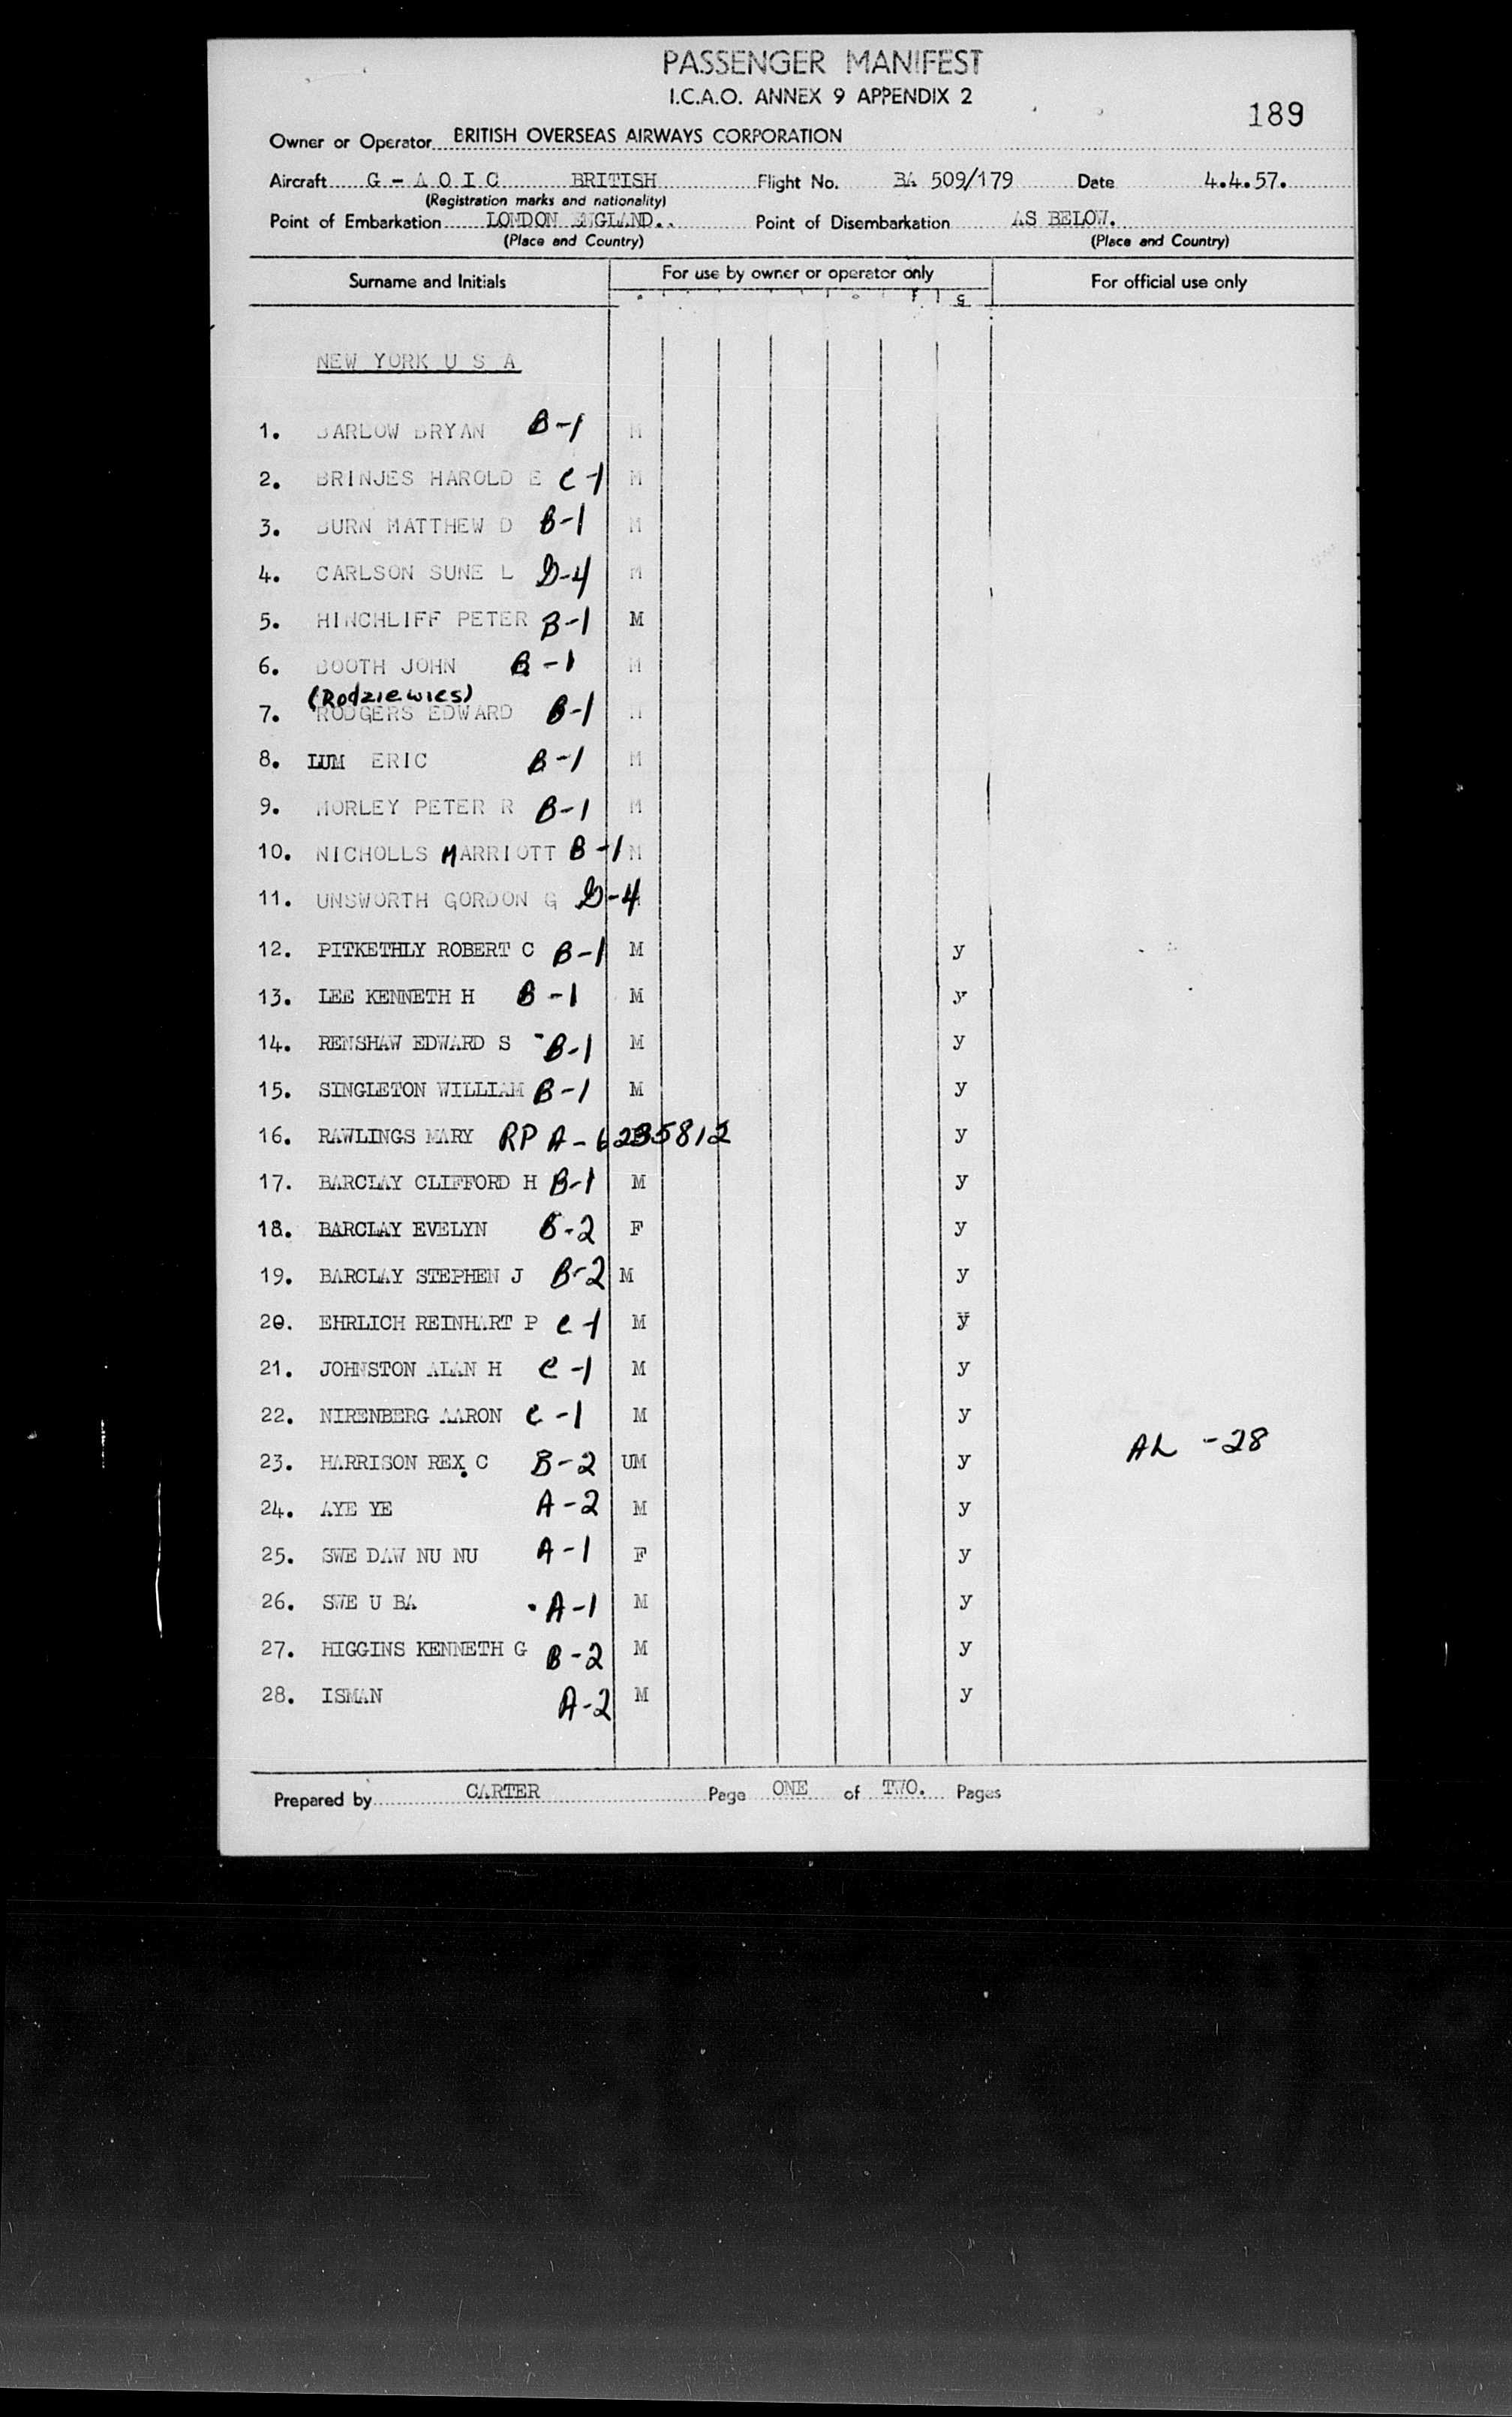 PASSENGER MANIFEST
I.C.A.O. ANNEX 9 APPENDIX 2
189
Owner or Operator BRITISH OVERSEAS AIRWAYS CORPORATION
Aircraft G - A O I C BRITISH Flight No. BA 509/179 Date 4.4.57.
(Registration marks and nationality)
Point of Embarkation LONDON ENGLAND.. Point of Disembarkation AS BELOW.
(Place and Country) (Place and Country)
Surname and Initials For use by owner or operator only For official use only
NEW YORK U S A
1. BARLOW BRYAN B-1 M
2. BRINJES HAROLD E C-1 M
3. BURN MATTHEW D B-1 M
4. CARLSON SUNE L D-4 M
5. HINCHLIFF PETER B-1 M
6. BOOTH JOHN B-1 M
(Rodziewics)
7. RODGERS EDWARD B-1 M
8. LUM ERIC B-1 M
9. MORLEY PETER R B-1 M
10. NICHOLLS MARRIOTT B-1 M
11. UNSWORTH GORDON G D-4
12. PITKETHLY ROBERT C B-1 M y
13. LEE KENNETH H B-1 M y
14. RENSHAW EDWARD S B-1 M y
15. SINGLETON WILLIAM B-1 M y
16. RAWLINGS MARY RP A-6235812 y
17. BARCLAY CLIFFORD H B-1 M y
18. BARCLAY EVELYN B-2 F y
19. BARCLAY STEPHEN J B-2 M y
20. EHRLICH REINHART P C-1 M y
21. JOHNSTON ALAN H C-1 M y
22. NIRENBERG AARON C-1 M y
AL -28
23. HARRISON REX. C B-2 UM y
24. AYE YE A-2 M y
25. SWE DAW NU NU A-1 F y
26. SWE U BA A-1 M y
27. HIGGINS KENNETH G B-2 M y
28. ISMAN A-2 M y
Prepared by CARTER Page ONE of TWO. Pages